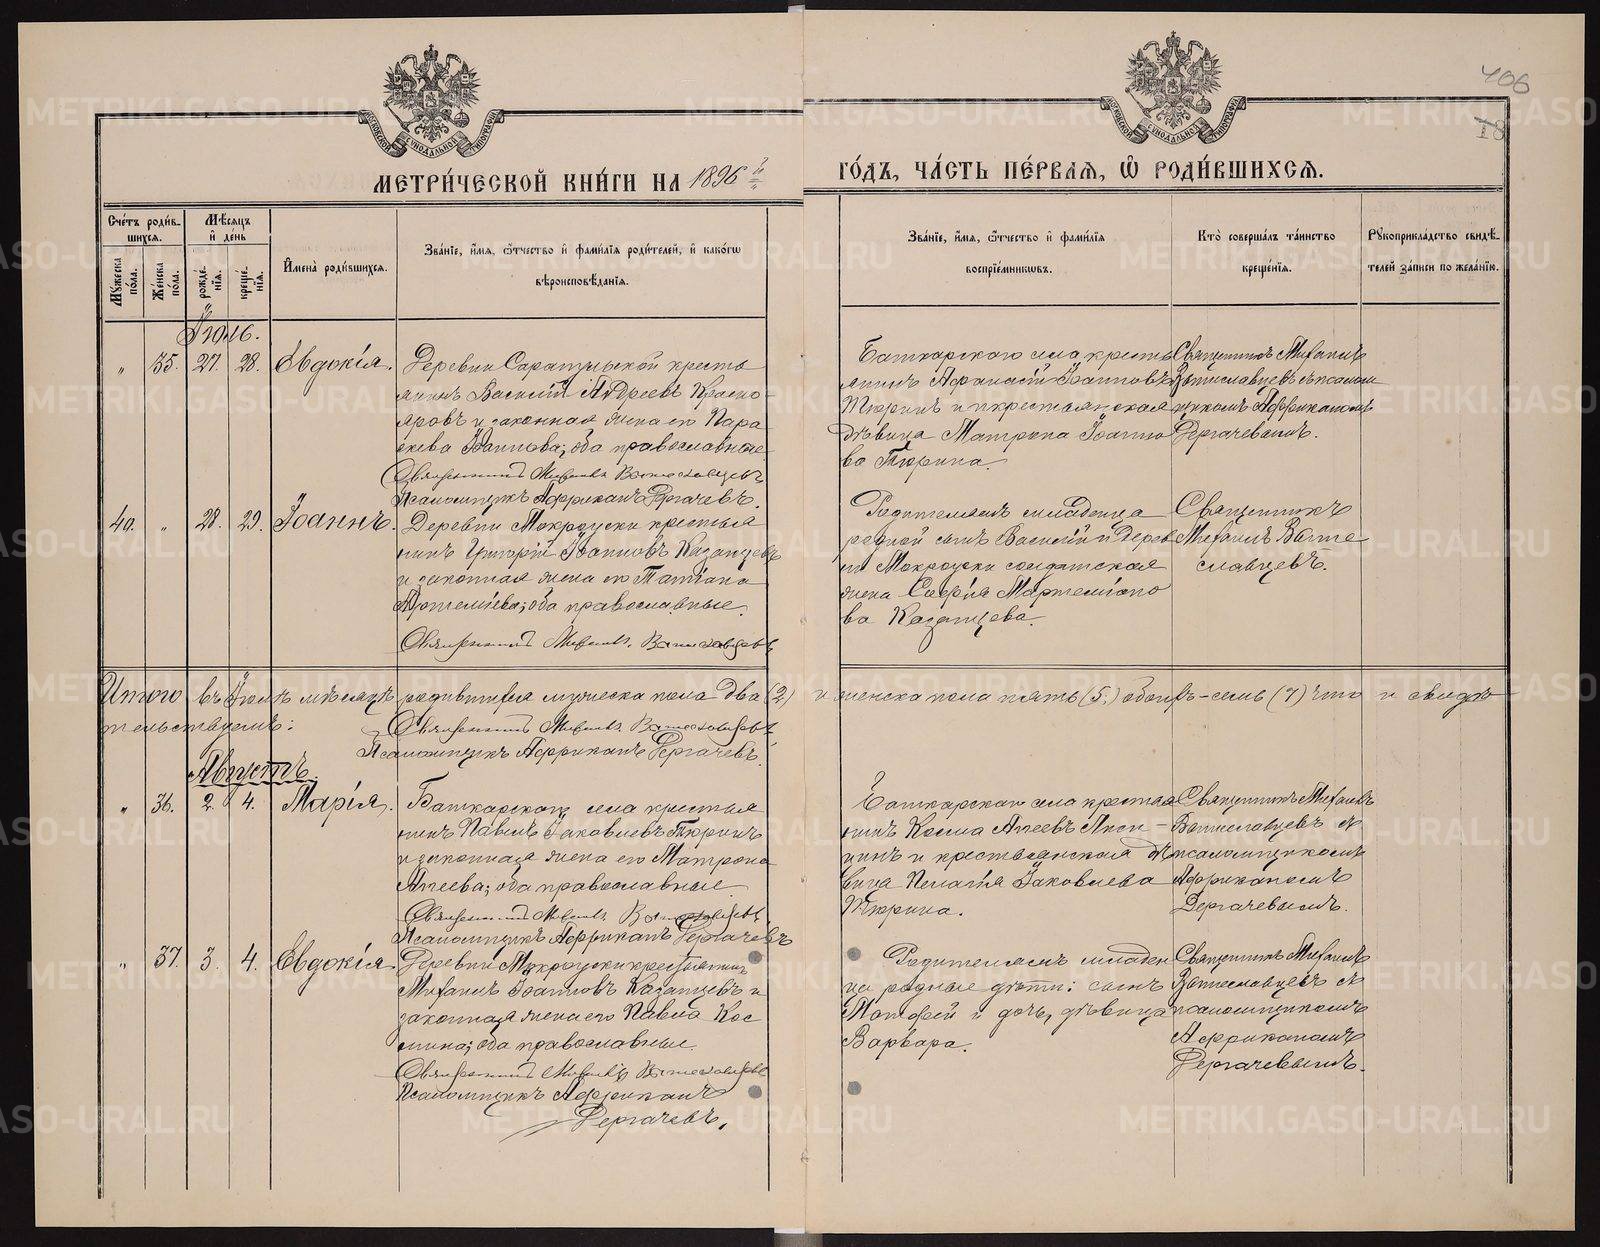 406
18
МОСКОВСКОЙ СѴНОДАЛЬНОЙ ТИПОГРАФІИ
МОСКОВСКОЙ СѴНОДАЛЬНОЙ ТИПОГРАФІИ
МЕТРИ́ЧЕСКОЙ КНИ́ГИ НА 1896 й
ГО́ДЪ, ЧА́СТЬ ПЕ́РВАѦ, Ѽ РОДИ́ВШИХСѦ.
Сче́тъ роди́в-
шихсѧ.
Мꙋжеска по́ла.
Же́нска по́ла.
Мѣ́сяцъ и҆ де́нь
рожде́нїѧ.
креще́нїѧ.
И҆мена̀ роди́вшихсѧ.
Зва́нїе, и҆́мѧ, ѻ҆́тчество и҆ фами́лїѧ роди́телей, и҆ како́гѡ
вѣроисповѣ́данїѧ.
Зва́нїе, и҆́мѧ, ѻ҆́тчество и҆ фами́лїѧ
воспрїе́мникѡвъ.
Кто̀ соверша́лъ та́инство
креще́нїѧ.
Рꙋкоприкла́дство свидѣ́-
телей за́писи по жела́нїю.
Іюль.
" 35. 27. 28. Евдокія.
Деревни Сарапульской кресть
янинъ Василій Андреевъ Красно-
яровъ и законная жена его Пара
скева Іоаннова; оба православные
Священникъ Михаилъ Вотиславцевъ
Псаломщикъ Африканъ Дергачевъ.
Башкарскаго села кресть
янинъ Афанасій Іоанновъ
Тюринъ и крестьянская
дѣвица Матрона Іоанно
ва Тюрина.
Священникъ Михаилъ
Вотиславцевъ съ псалом
щикомъ Африканомъ
Дергачевымъ.
40. " 28. 29. Іоаннъ.
Деревни Мокроуски крестья
нинъ Григорій Іоанновъ Казанцевъ
и законная жена его Татіана
Артеміева; оба православные.
Священникъ Михаилъ Вотиславцевъ
Родителямъ младенца
родной сынъ Василій и Дерев
ни Мокроуски солдатская
жена Софія Мартеміано
ва Казанцева.
Священникъ
Михаилъ Воти
славцевъ.
Итого въ Іюлѣ мѣсяцѣ родившихся мужеска пола два (2) и женска пола пять (5,) обоихъ-семь (7) что и свидѣ-
тельствуемъ:
Священникъ Михаилъ Вотиславцевъ
Псаломщикъ Африканъ Дергачевъ.
Августъ.
" 36. 2. 4. Марія.
Башкарскаго села крестья
нинъ Павелъ Іаковлевъ Тюринъ
и законная жена его Матрона
Агеева; оба православные
Священникъ Михаилъ Вотиславцевъ
Псаломщикъ Африканъ Дергачевъ
Башкарскаго села крестья
нинъ Косма Агеевъ
нинъ и крестьянская дѣ
вица Пелагія Іаковлева
Тюрина.
Священникъ Михаилъ
Вотиславцевъ съ
псаломщикомъ
Африканомъ
Дергачевымъ.
" 37. 3. 4. Евдокія.
Деревни Мокроуски крестьянинъ
Михаилъ Іоанновъ Казанцевъ и
законная жена его Павла Кос
мина; оба православные.
Священникъ Михаилъ Вотиславцевъ
Псаломщикъ Африканъ
Дергачевъ.
Родителямъ младен
ца родные дѣти: сынъ
Тимофей и дочь, дѣвица
Варвара.
Священникъ Михаилъ
Вотиславцевъ съ
псаломщикомъ
Африканомъ
Дергачевымъ.
METRIKI.GASO-URAL.RU